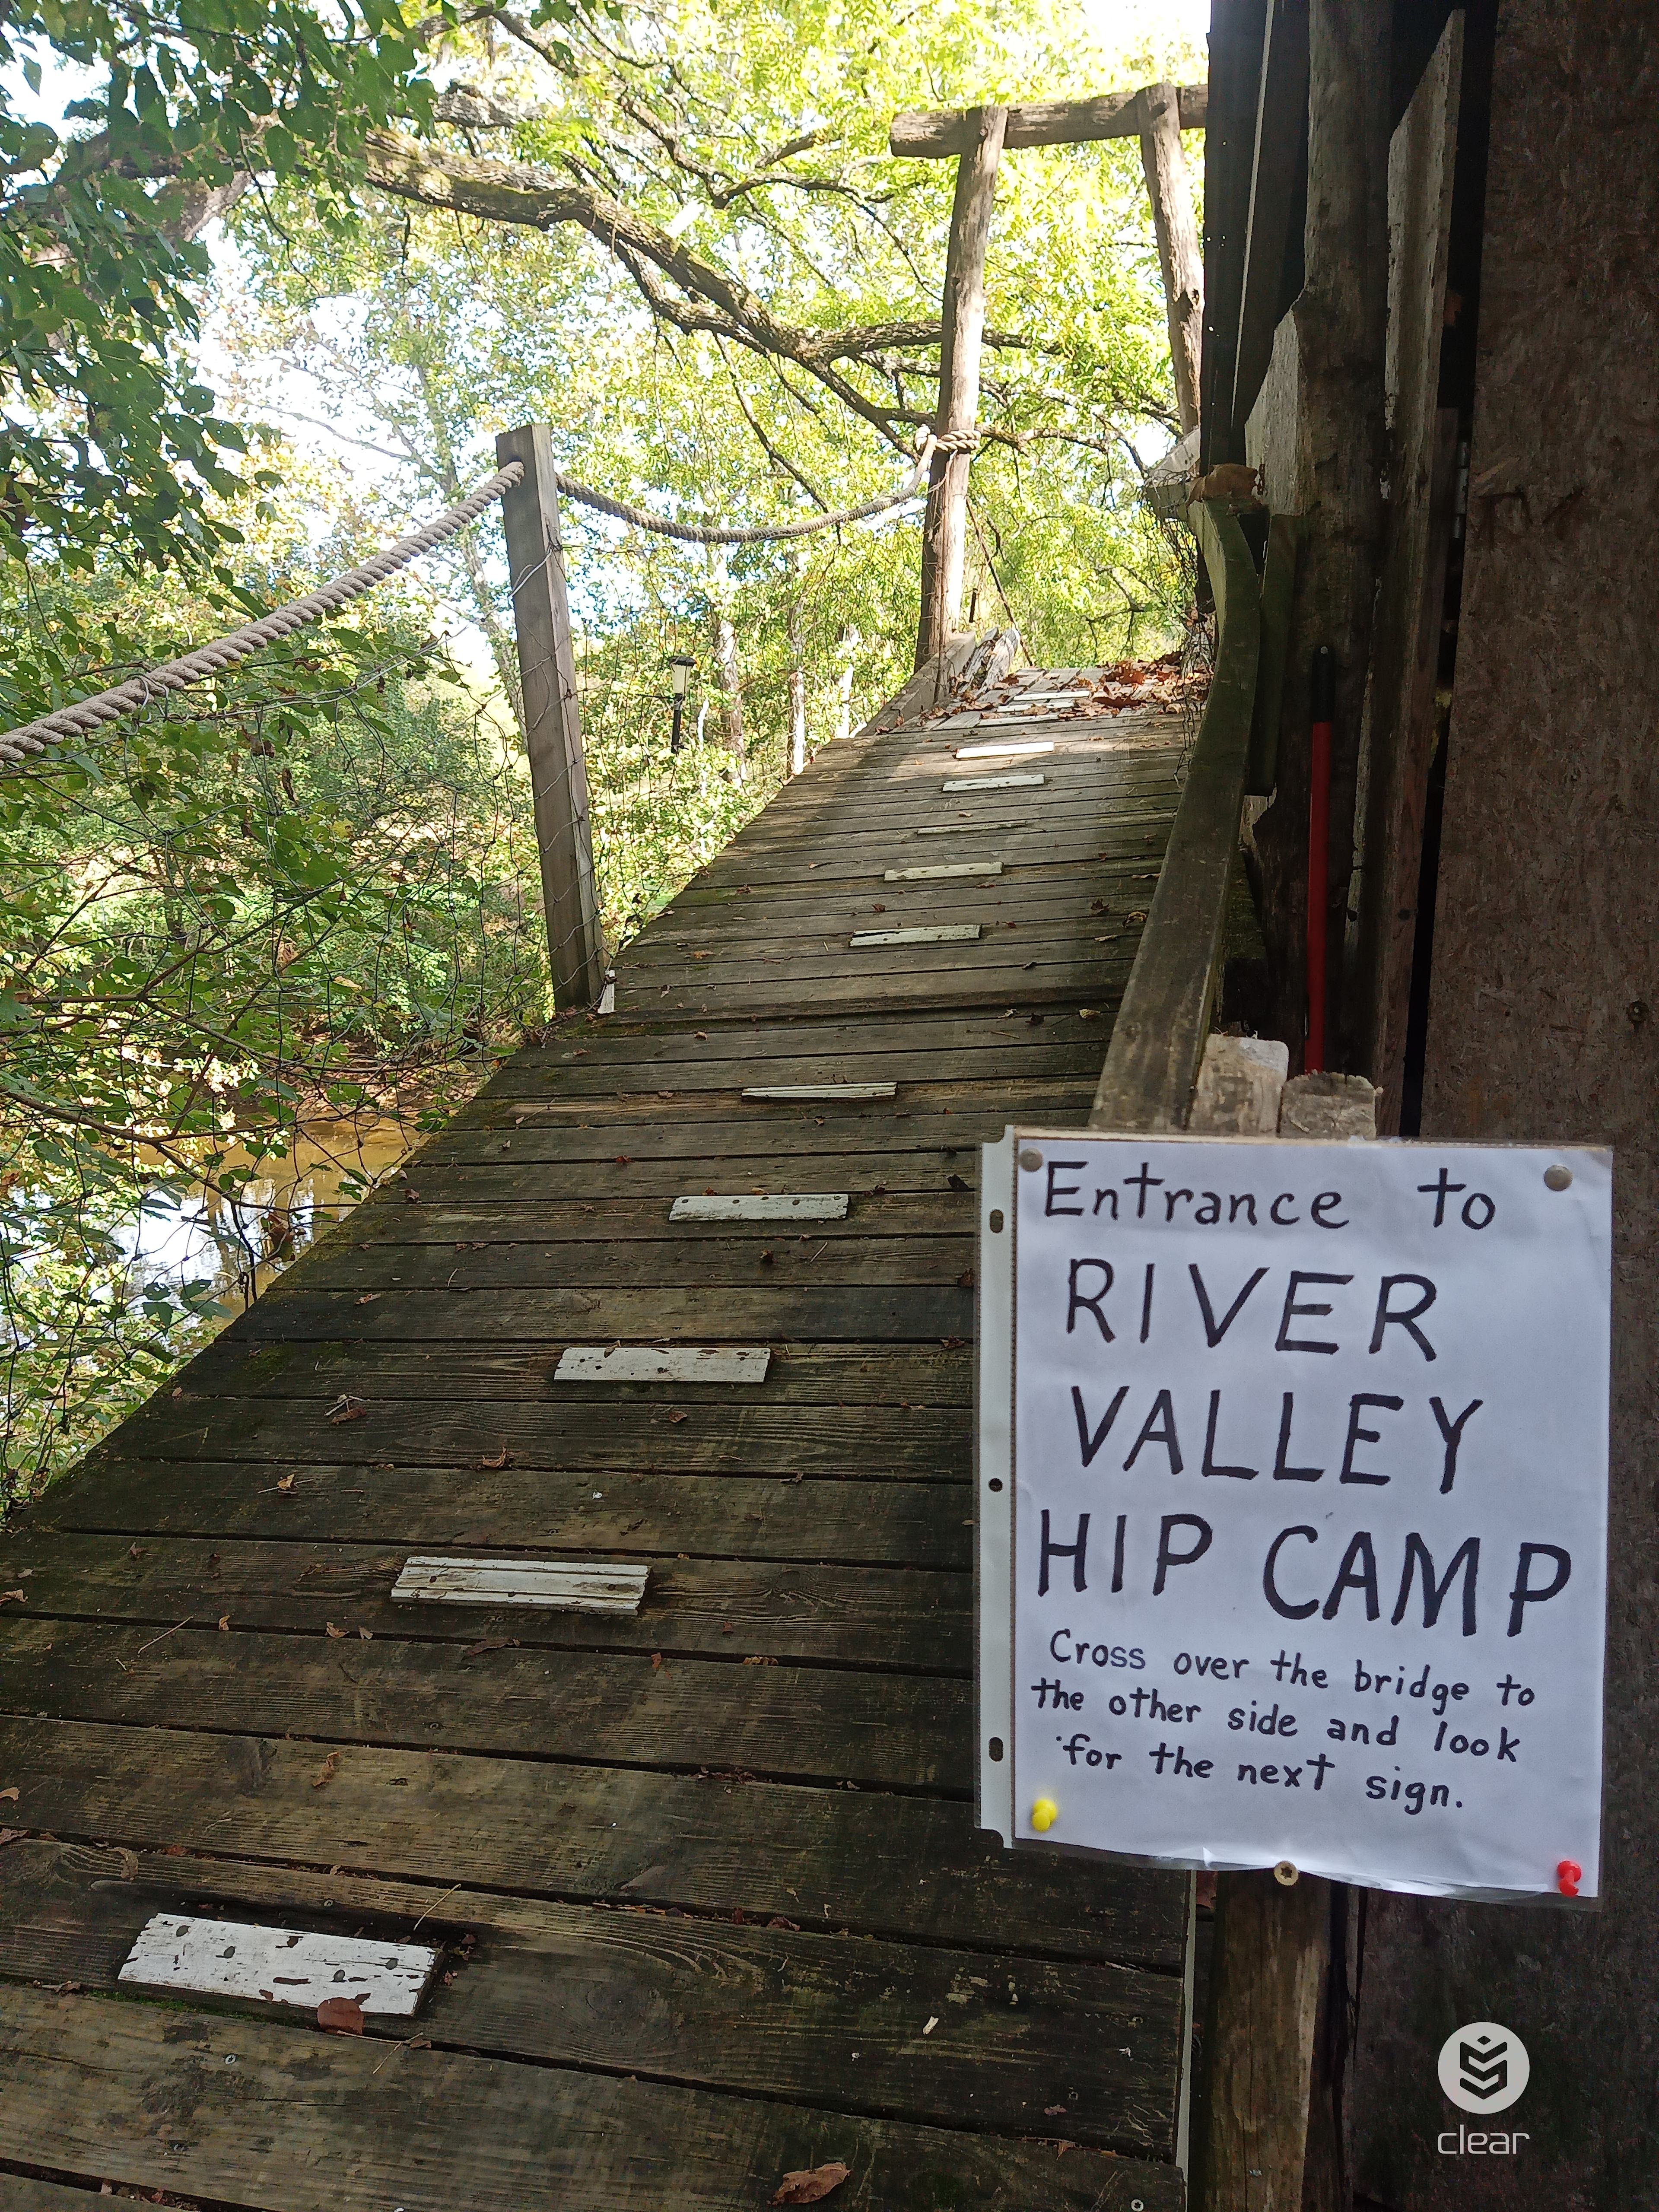 Entrance to
RIVER
VALLEY
HIP CAMP
Cross over the bridge to
the other side and look
for the next sign.
clear